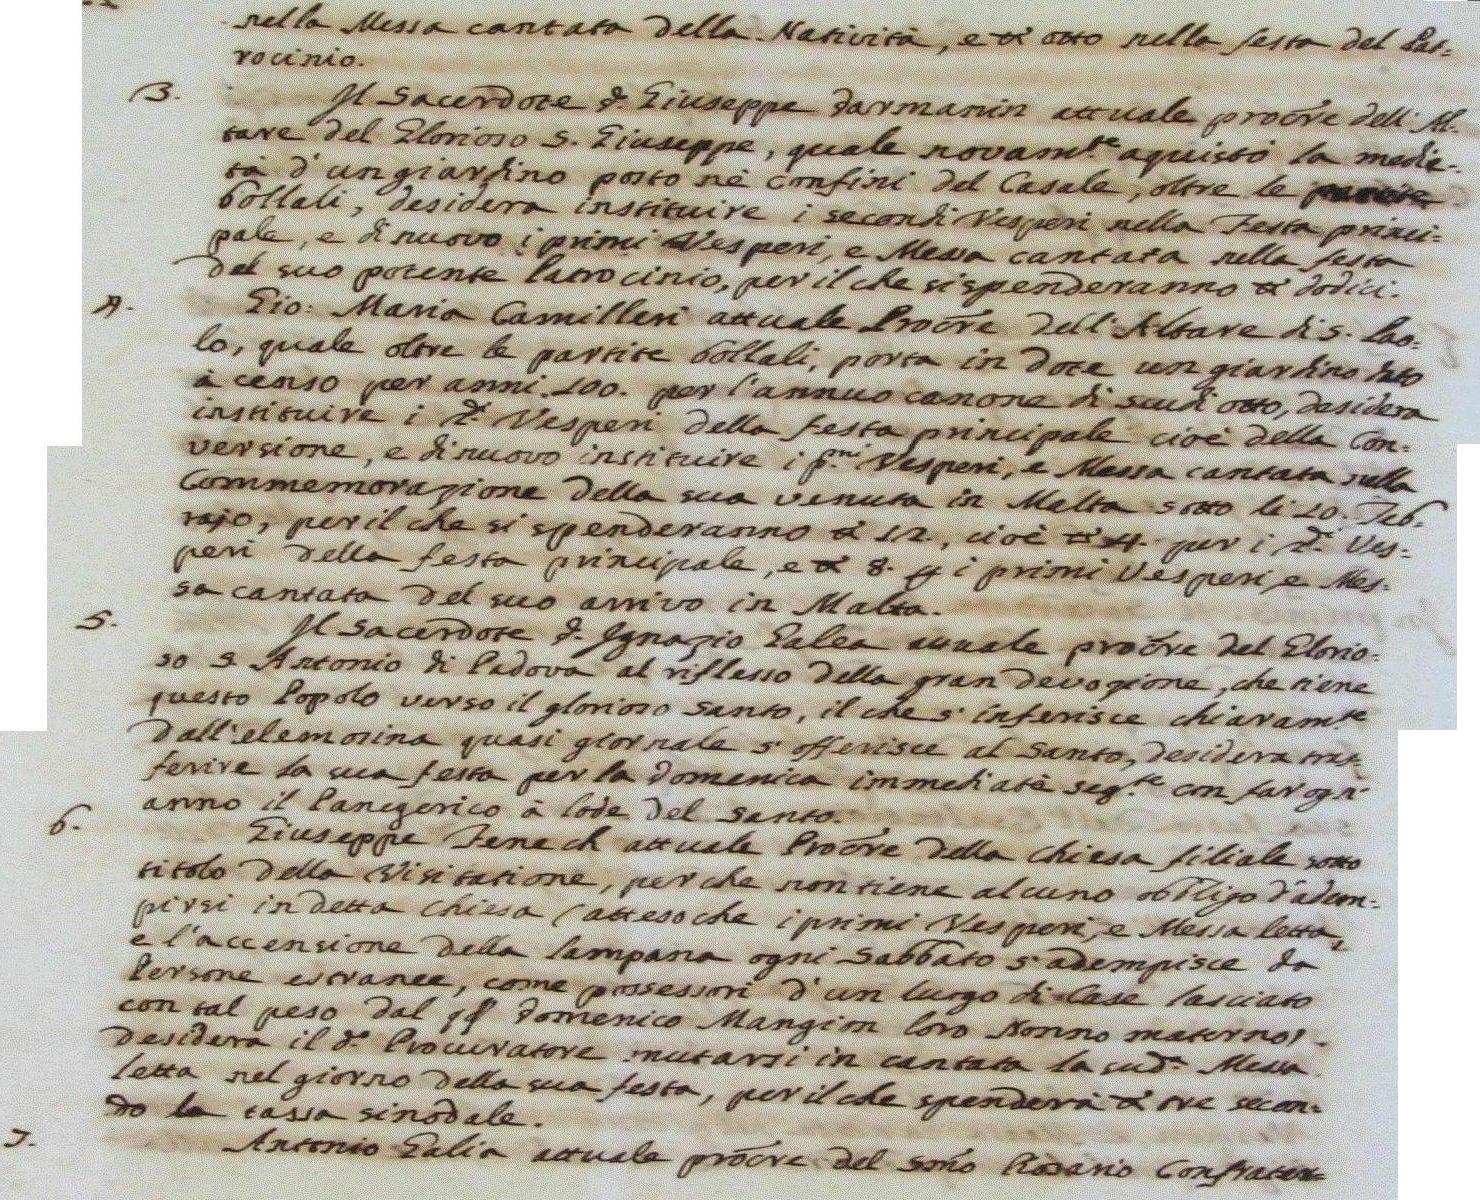 nella Messa cantata della Natività, e ѫ otto nella festa del Pat-
rocinio.
3. Il Sacerdote D. Giuseppe Darmanin attuale procre dell'Al-
tare del Glorioso S. Giuseppe, quale novamte aquistò la medie-
tà d'un giardino posto nè confini del Casale, oltre le partite
bollali, desidera instituire i secondi Vesperi nella Festa princi-
pale, e di nuovo i primi Vesperi, e Messa cantata nella festa
del suo potente Patrocinio, per il che si spenderanno dodici.
4. Gio: Maria Camilleri attuale Procre dell'Altare di S. Pao-
lo, quale oltre le partite bollali, porta in dote un giardino dato
à censo per anni 100. per l'annuo canone di scudi otto, desidera
instituire i 2di Vesperi della festa principale cioè della Con-
versione, e di nuovo instituire i pmi Vesperi, e Messa cantata nella
Commemorazione della sua venuta in Malta sotto li 10. Feb-
rajo, per il che si spenderanno 12., cioè 4. per i 2di Ves-
peri della festa principale, e 8. p i primi Vesperi, e Mes-
sa cantata del suo arrivo in Malta.
5. Il Sacerdote D. Ignazio Galea attuale procre del Glorio-
so S. Antonio di Padova al riflesso della gran devozione, che tiene
questo Popolo verso il glorioso Santo, il che s'inferisce chiaramte
dall'elemosina quasi giornale s'offerisce al Santo, desidera tras-
ferire la sua festa per la Domenica immediatè segte con far ogn'
anno il Panegerico à lode del Santo.
6. Giuseppe Fenech attuale Procre della Chiesa filiale sotto
titolo della Visitatione, perche non tiene alcuno obbligo d'adem-
pirsi in detta Chiesa (atteso che i primi Vesperi, e Messa letta,
e l'accensione della lampana ogni Sabbato s'adempisce da
Persone estranee, come possessori d'un luogo di Case lasciato
con tal peso dal qq Domenico Mangion loro Nonno materno).
desidera il do Procuratore mutarsi in cantata la suda Messa
letta nel giorno della sua festa, per il che spenderà tre secon-
do la tassa sinodale.
7. Antonio Galia attuale procre del Smo Rosario Confrater-